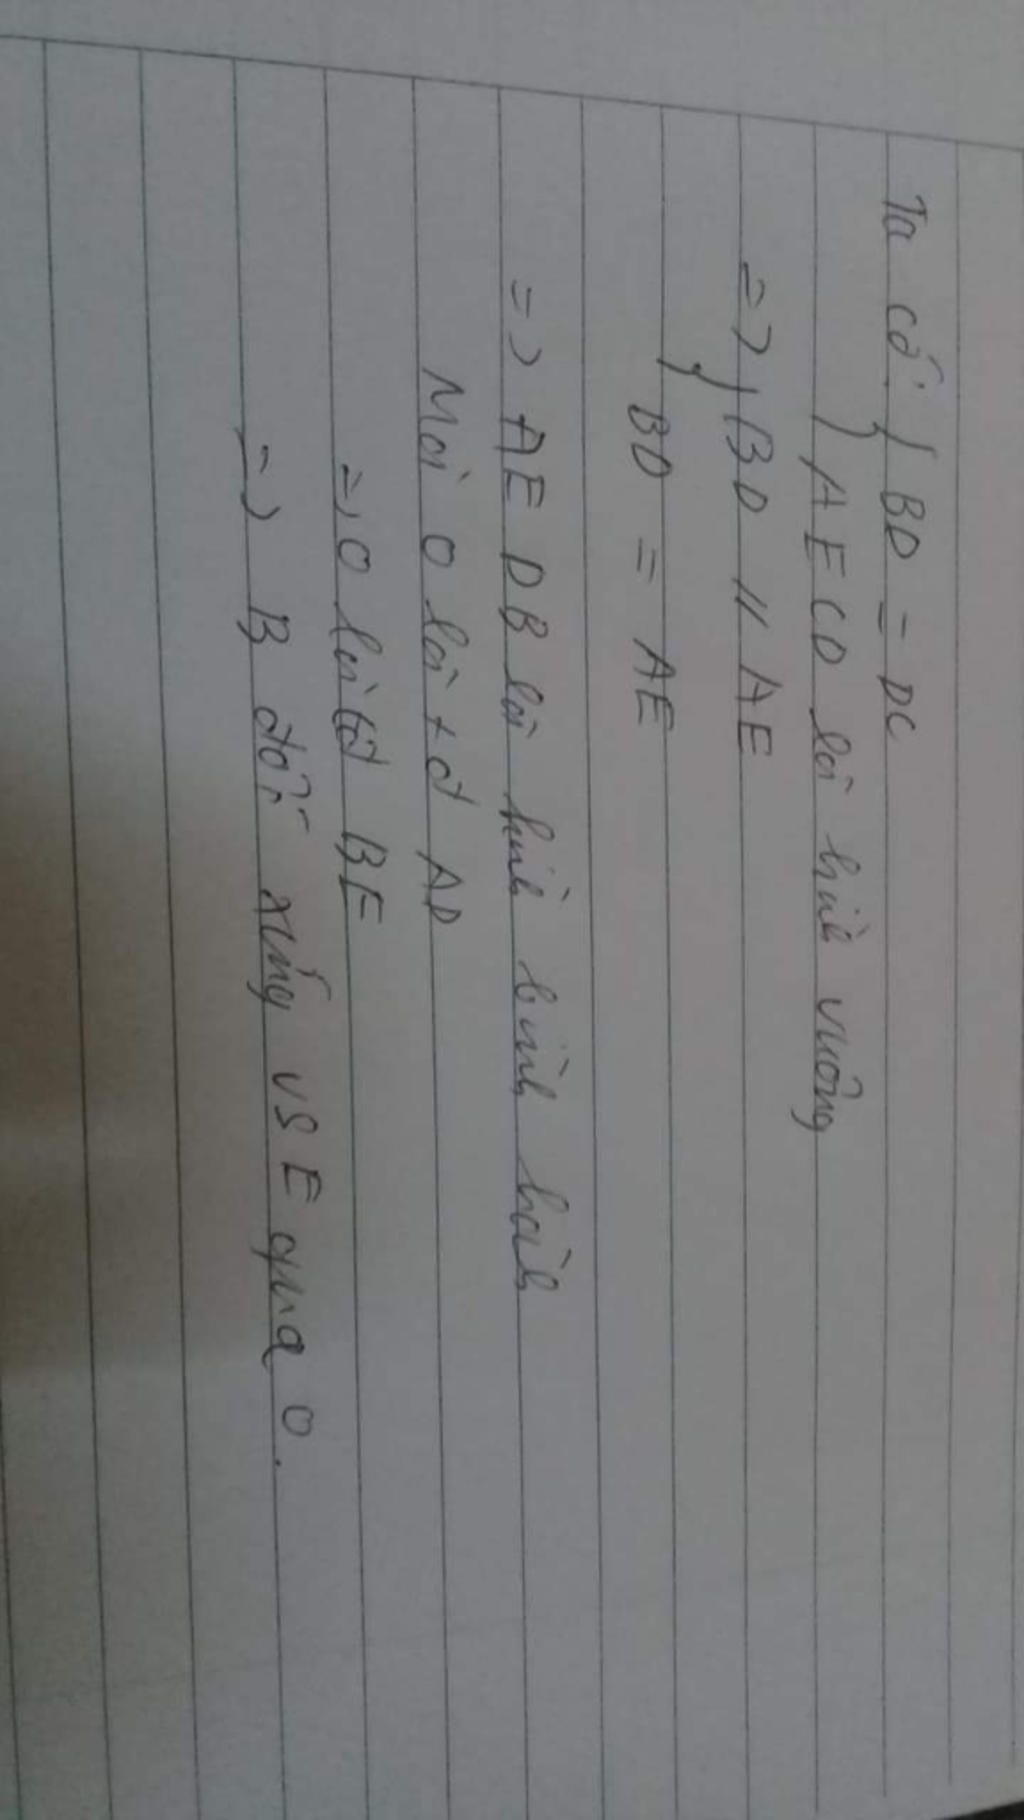 Ta có { BD = DC
AECD là hình vuông
=> { BD // AE
BD = AE
=> AEDB là hình bình hành
Mà O là tđ AD
=> O là tđ BE
=> B đối xứng vs E qua O.